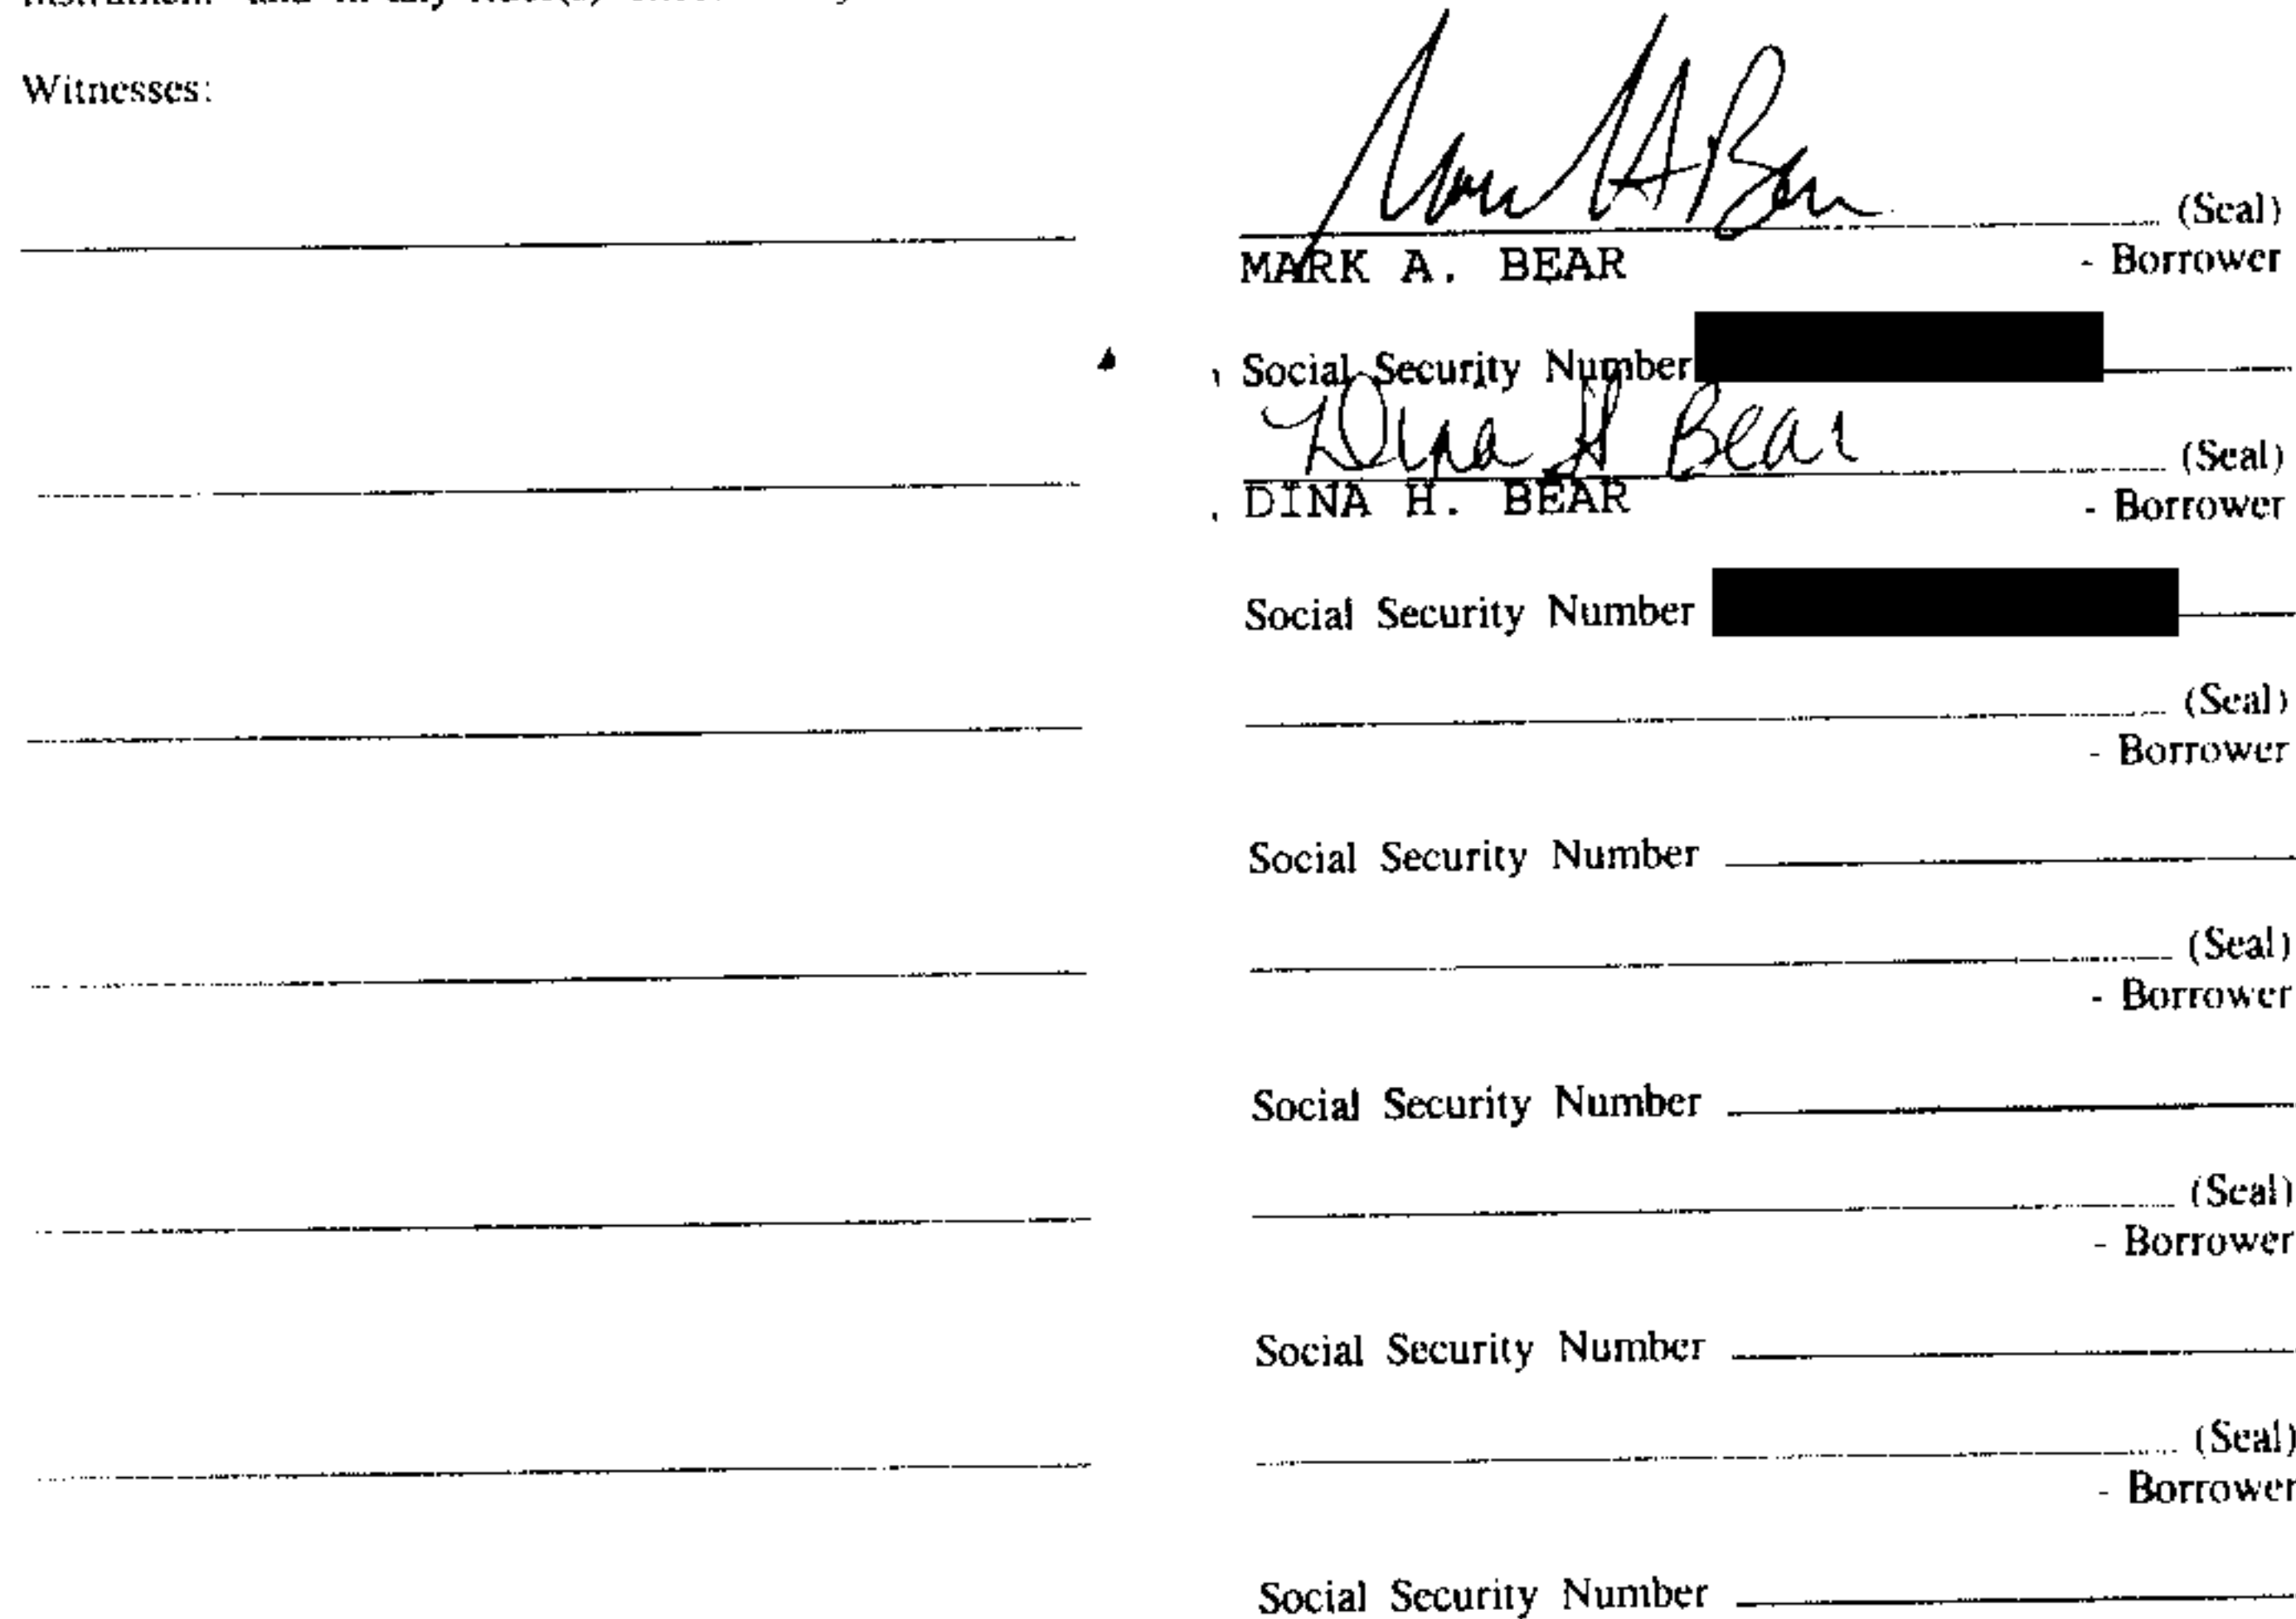 Witnesses:
Mark A Bear
(Seal)
MARK A. BEAR - Borrower
Social Security Number
Dina H Bear
(Seal)
DINA H. BEAR - Borrower
Social Security Number
(Seal)
- Borrower
Social Security Number
(Seal)
- Borrower
Social Security Number
(Seal)
- Borrower
Social Security Number
(Seal)
- Borrower
Social Security Number